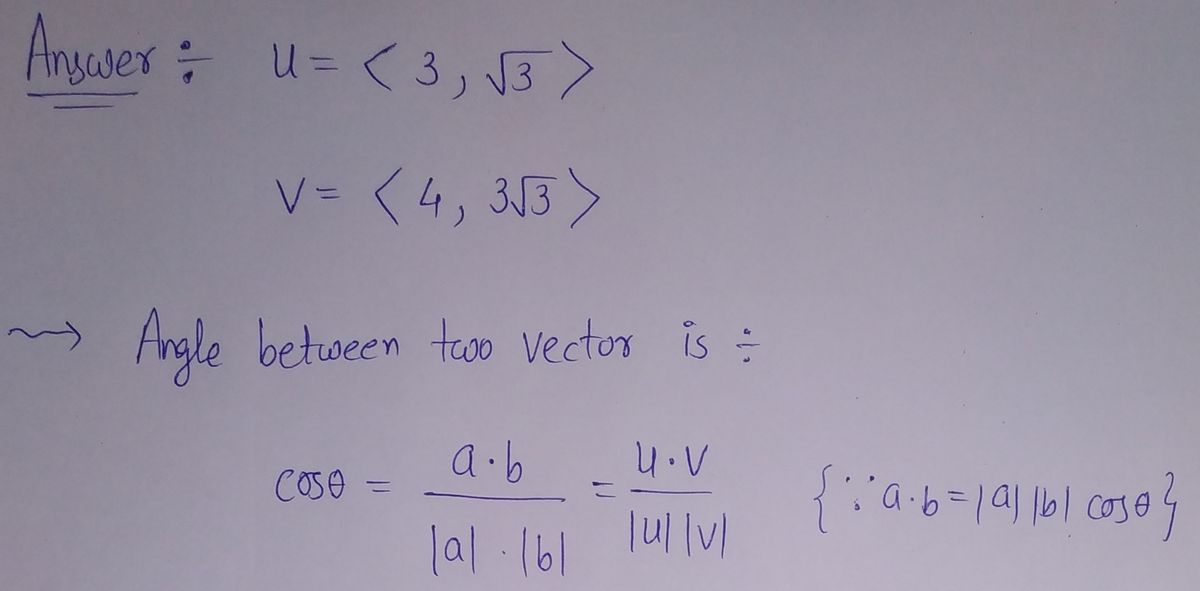 Answer ÷ u = < 3, √3 >
v = < 4, 3√3 >
⇝ Angle between two vector is ÷
cosθ = a·b / |a|·|b| = u·v / |u| |v| {∵ a·b = |a| |b| cosθ}